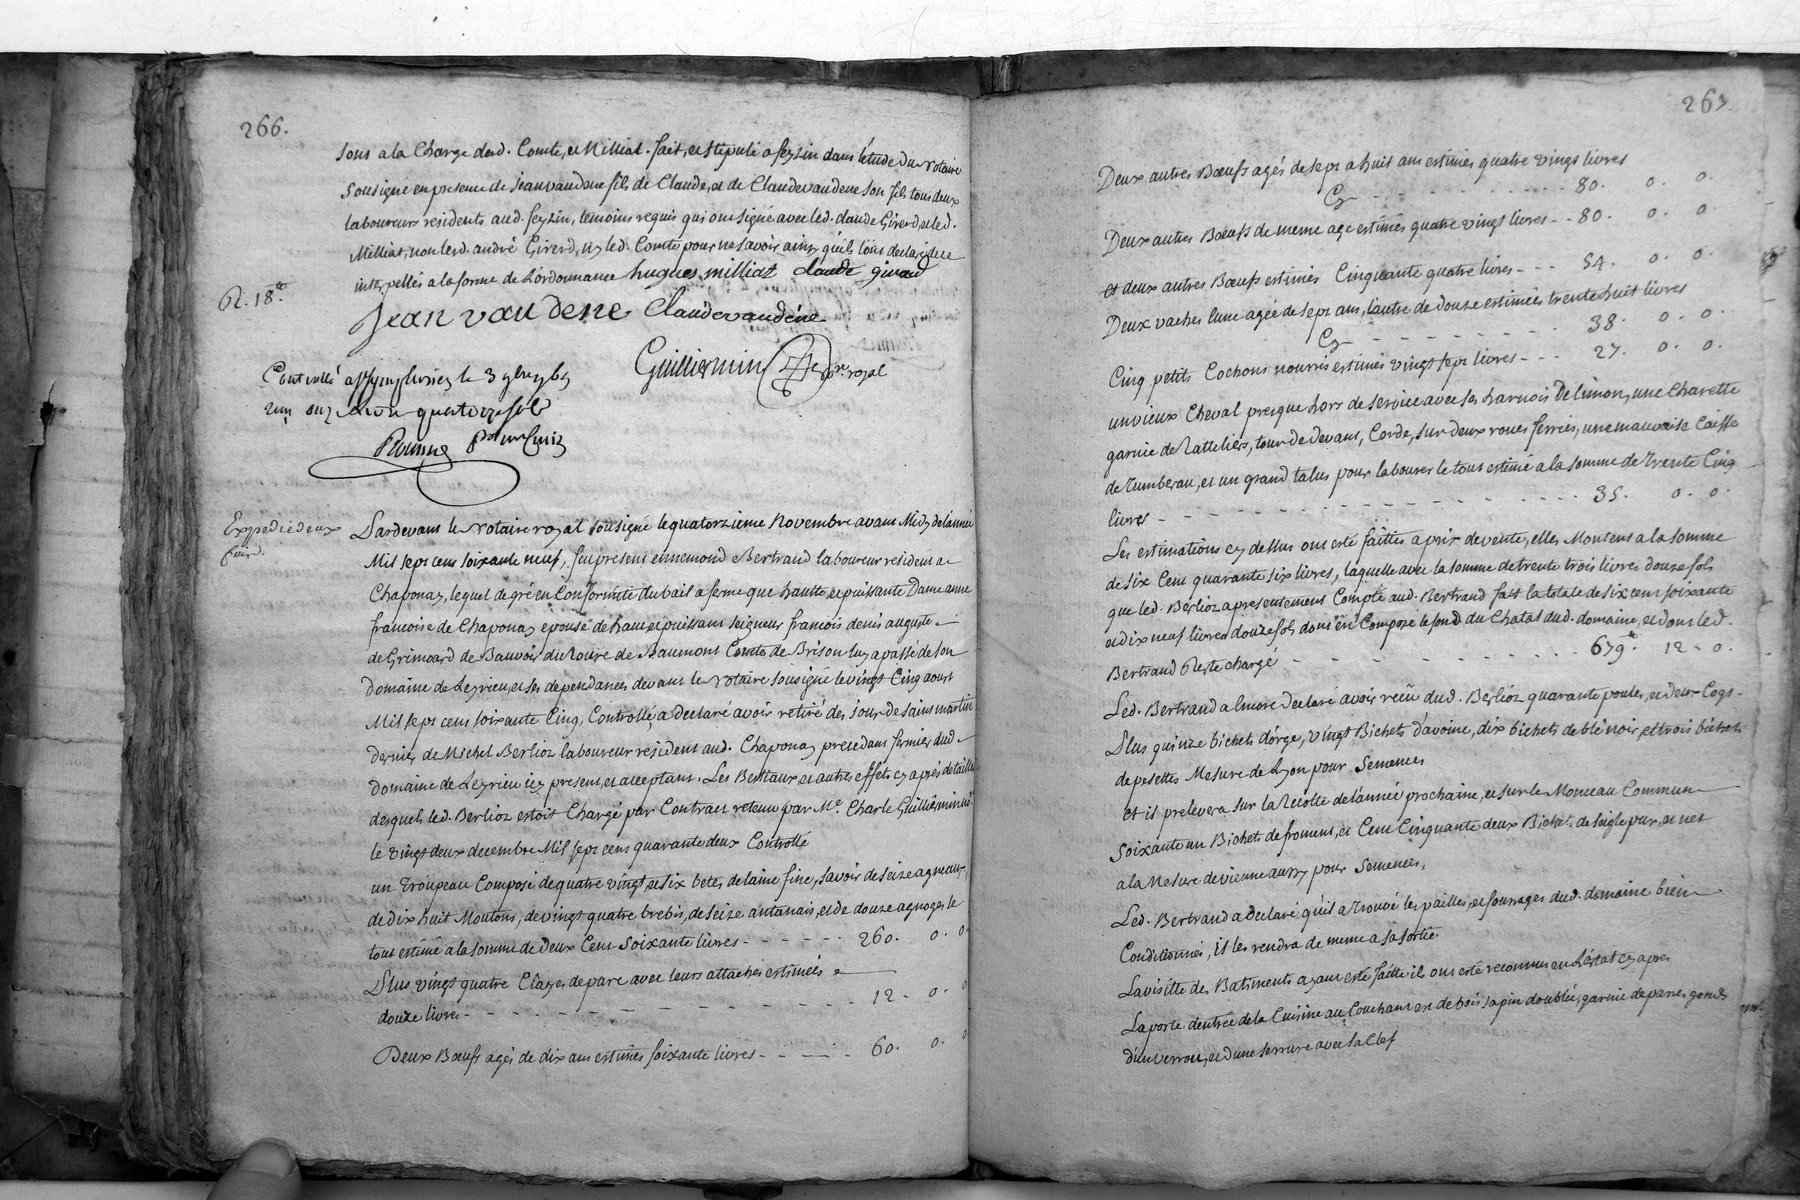 266.
sous a la Charge desd. Comte, et Milliat. fait, et stipulé a feyzin dans l'étude du Notaire
sousigné en presence de Jean vaudene fils de Claude, et de Claude vaudene son fils tous deux
laboureurs residents aud. feyzin, temoins requis qui ont signé avec led. claude Girerd, et led.
Milliat, non led. andré Girerd, ny led. Comte pour ne savoir ainsy qu'ils l'ont declaré de ce
interpellés a la forme de L'ordonnance hugues milliat claude girerd
R. 18 s
Jean vaudene Claude vaudéne
Guilliermin no.re royal
Controllé a st Symphorien le 3
quatorze sols
Expedié deux
fois
Pardevant le Notaire royal sousigné le quatorzieme Novembre avant Midy de l'année
Mil sept cent soixante neuf, fut present ennemond Bertrand laboureur resident a
Chaponay, lequel de gré en Conformité du bail a ferme que haute, et puissante Dame anne
francoise de Chaponay epouse de haut et puissant seigneur francois denis auguste
de Grimoard de Bauvoir du Roure de Beaumont Comte de Brison luy a passé de son
domaine de Leyrieu, et ses dependances devant le Notaire sousigné le vingt Cinq aoust
Mil sept cent soixante Cinq, Controllé, a declaré avoir retiré des le jour de saint martin
dernier de Michel Berlioz laboureur resident aud. Chaponay precedant fermier dud.
domaine de Leyrieu icy present, et acceptant. Les Bestiaux et autres effets cy après detaillés
desquels led. Berlioz estoit Chargé par Contract retenu par Me. Charle Guilliermin no.re
le vingt deux decembre Mil sept cent quarante deux Controllé
un Troupeau Composé de quatre vingt et six betes de laine fine, savoir de seize agneaux,
de dix huit Moutons, de vingt quatre brebis, de seize antanais, et de douze agnoges, le
tout estimé a la somme de Deux Cent soixante livres - - - - - 260. 0. 0.
Plus vingt quatre Clayes de parc avec leurs attaches estimées
douze livres - - - - - - - - - - 12. 0. 0
Deux Bœufs agés de dix ans estimés soixante livres - - - - - 60. 0. 0
263
Deux autres Bœufs agés de sept a huit ans estimés quatre vingt livres
Cy - - - - - - - - - - 80. 0. 0.
Deux autres Bœufs de meme age estimés quatre vingt livres - - 80. 0. 0.
et deux autres Bœufs estimés Cinquante quatre livres - - - 54. 0. 0.
Deux vaches l'une agée de sept ans, l'autre de douze estimées trente huit livres
Cy - - - - - - - - 38. 0. 0.
Cinq petits Cochons nourris estimés vingt sept livres - - - 27. 0. 0.
un vieux Cheval presque hors de service avec ses harnois De limon, une Charette
garnie de Ratteliers, tour de devant, Corde, sur deux roues ferrées, une mauvaise Caisse
de Tumbereau, et un grand talus pour labourer le tout estimé a la somme de Trente Cinq
livres - - - - - - - - - - - - 35. 0. 0.
Les estimations cy dessus ont esté faittes a prix de vente, elles Montent a la somme
de six Cent quarante six livres, laquelle avec la somme de trente trois livres douze sols
que led. Berlioz a presentement Compté aud. Bertrand fait la totale de six cent soixante
et dix neuf livres douze sols dont est Composé le fond du Chatal dud. domaine, et dont led.
Bertrand Reste chargé - - - - - - - - - - 679 tt 12. 0.
Led. Bertrand a Encore declaré avoir reçu dud. Berlioz quarante poules, et deux Coqs -
Plus quinze bichets d'orge, vingt Bichets d'avoine, dix bichets de blé noir, et trois bichets
de pesettes Mesure de Lyon pour Semences
et il prelevera sur la Recolte de l'année prochaine, et sur le Monceau Commun
Soixante un Bichets de froment, et Cent Cinquante deux Bichets de seigle pur, et net
a la Mesure de vienne aussy pour Semences,
Led. Bertrand a declaré qu'il a Trouvé les pailles, et fourrages dud. domaine bien
Conditionnés, il les rendra de meme a sa sortie.
La visitte des Batiments ayant esté faitte ils ont esté reconnus en L'estat cy apres
La porte d'entrée de la Cuisine au Couchant est de bois sapin doublée, garnie de panes gonds
d'un verrou, et d'une serrure avec sa Clef